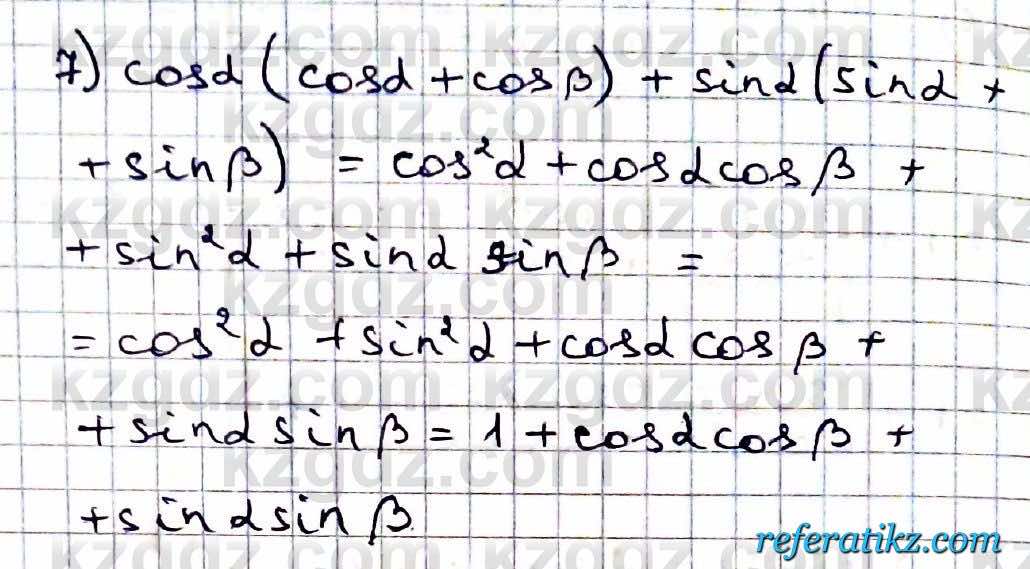 7) cosα (cosα + cosβ) + sinα (sinα +
+ sinβ) = cos²α + cosα cosβ +
+ sin²α + sinα sinβ =
= cos²α + sin²α + cosα cosβ +
+ sinα sinβ = 1 + cosα cosβ +
+ sinα sinβ
kzgdz.com
referatikz.com